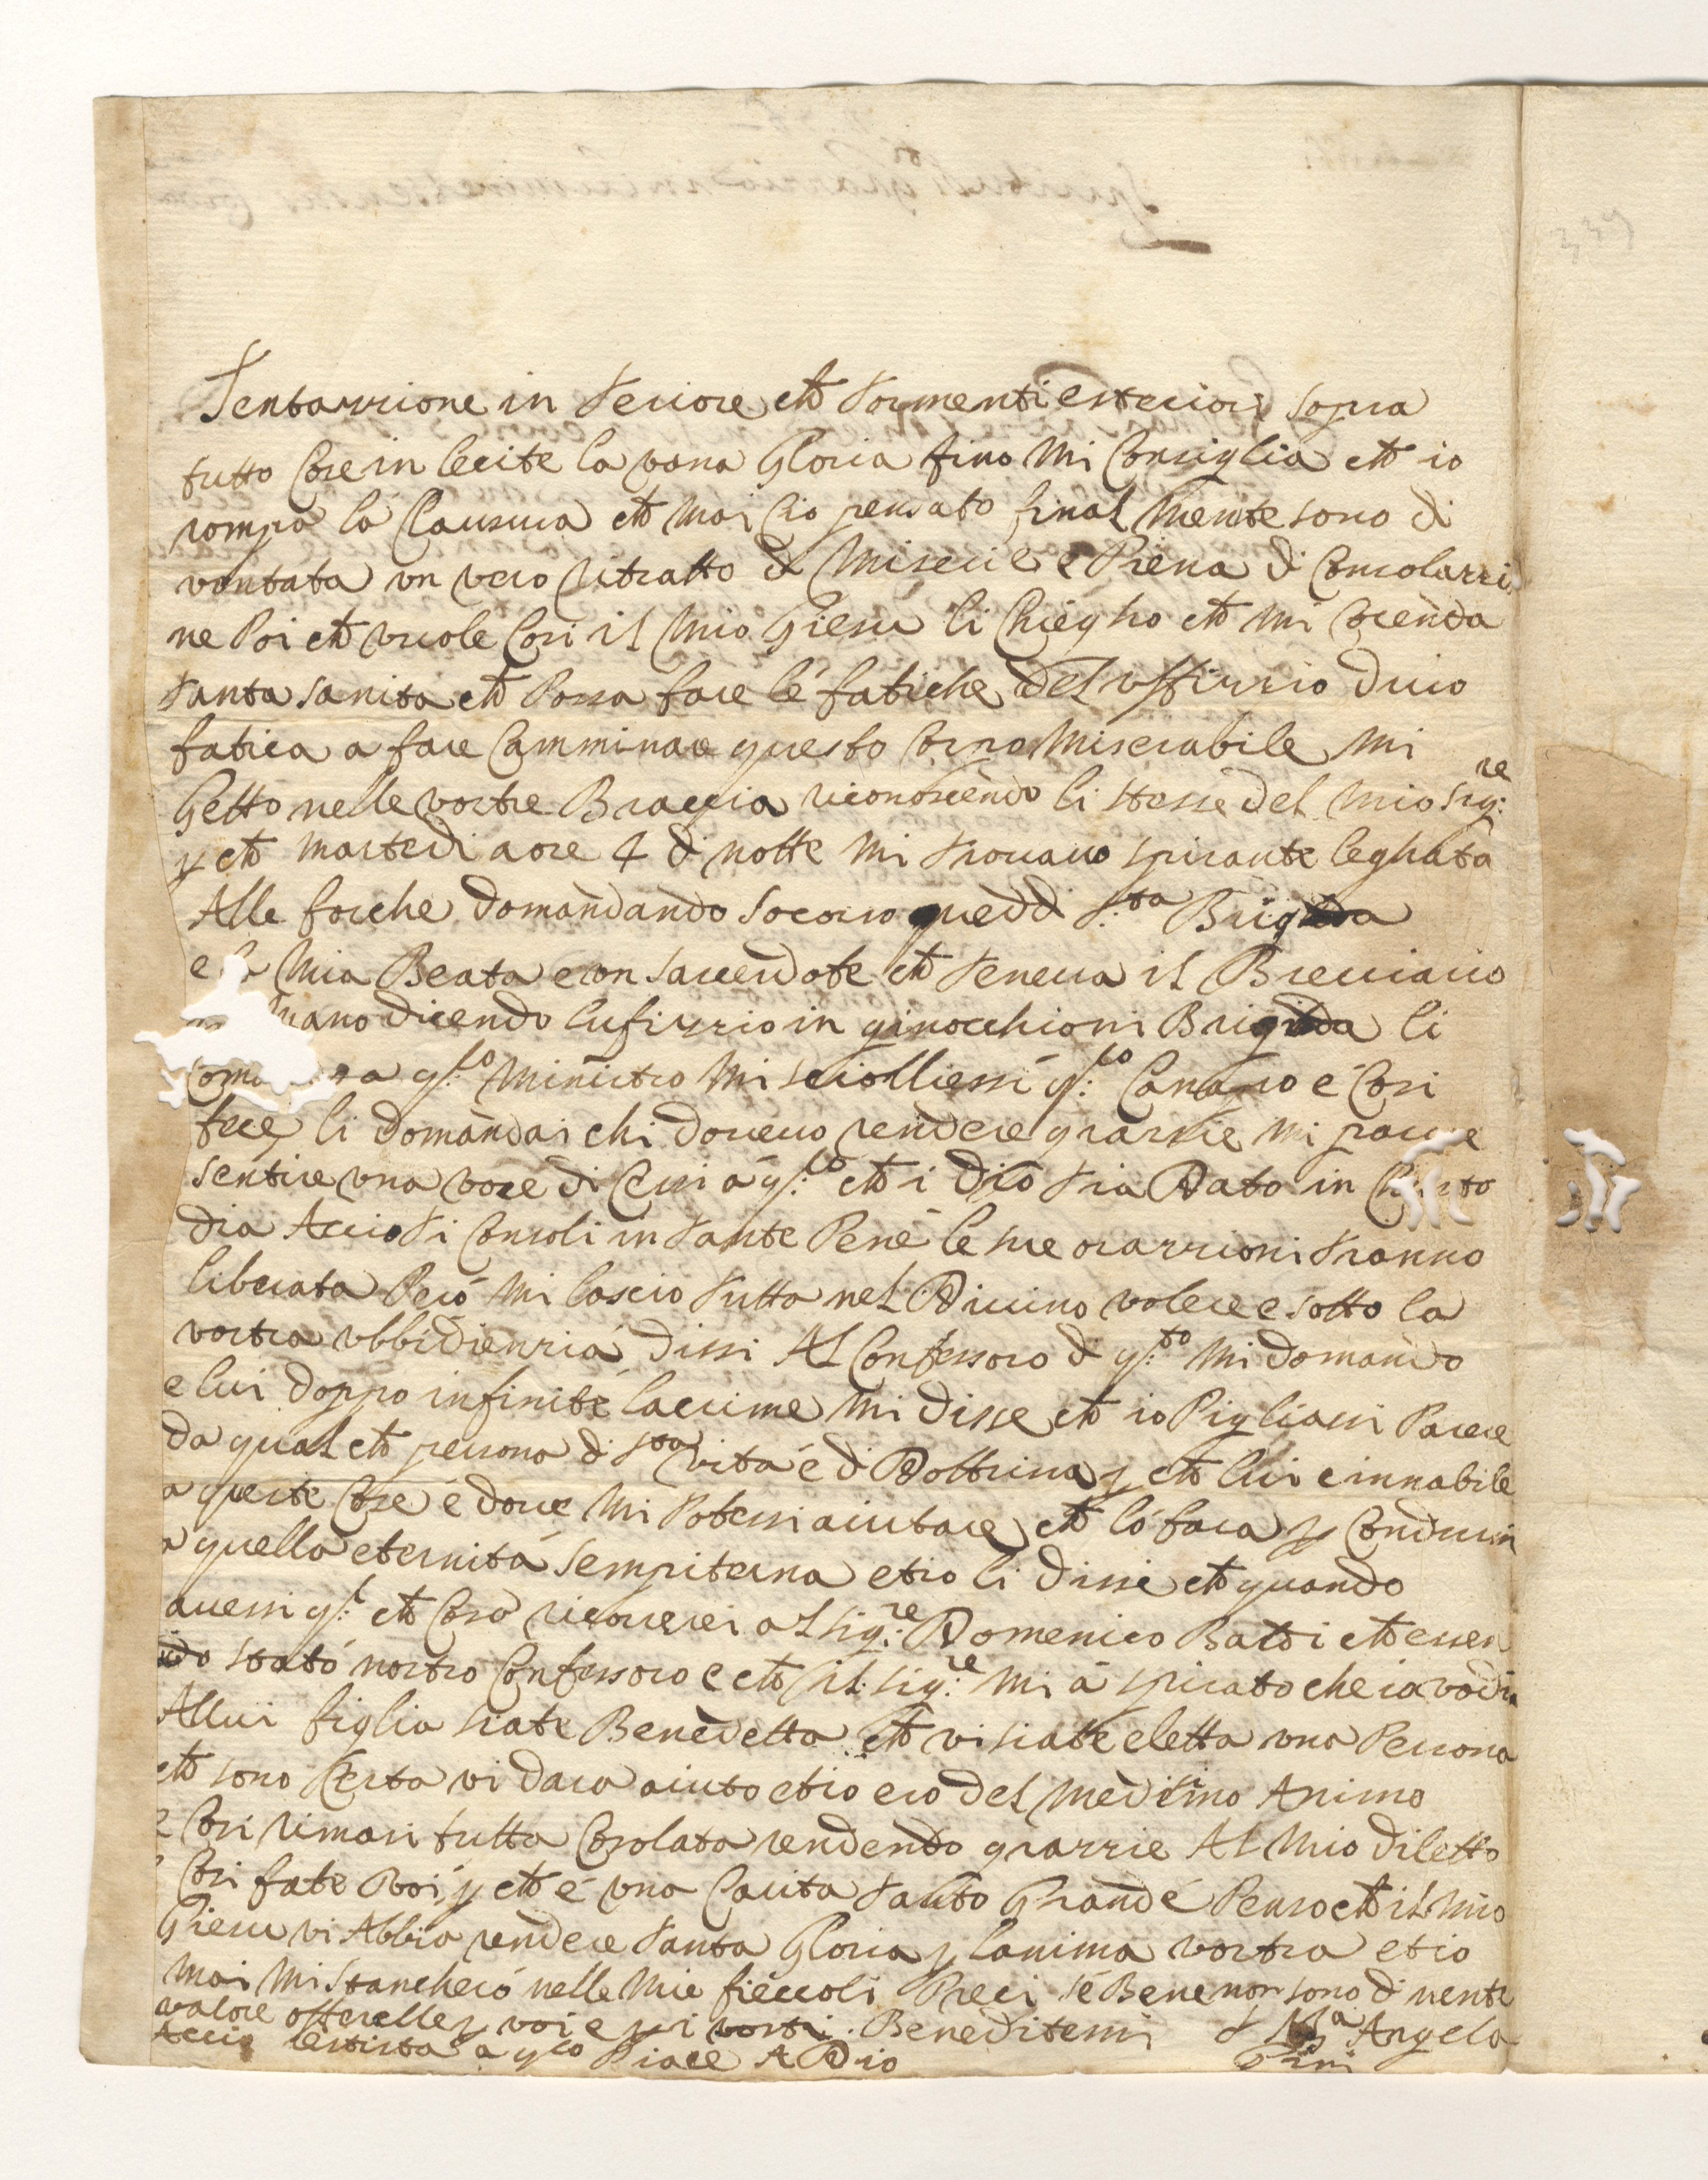 Tentazzione in teriore che tormenti esteriori sopra
tutto Cose in lecite la vana Gloria fino mi Consiglia che io
rompa la Clausura che mai Cio pensato final mente sono di
ventata vn vero ritratto di Miserie e Piena di Consolazzi
ne Poi che vuole Cosi il mio Giesu li Chiegho che mi Renda
tanta sanita che Possa fare le fatiche del vffizzio duro
fatica a fare Camminare questo Corpo Miserabile mi
Getto nelle vostre Braccia riconoscendo li stesse del mio sig:re
p che martedi a ore 4 di notte mi trovavo spirante leghata
Alle forche domandando Socorso S:ta Brigida
e la Mia Beata e vn sacerdote che teneva il Breviario
mano dicendo lufizzio in ginochioni Brigida li
q:to ministro mi sciolliessi q:to Canapo e Cosi
fece li domandai chi dovevo rendere grazzie mi parve
sentire vna voce di Cissi a q:to che i dio tia Dato in
dia Accio ti Consoli in tante Pene le sue orazzioni tranno
liberata Pero mi lascio tutta nel Divino volere e sotto la
vostra vbbidienzia dissi Al Confessoro di q:to mi domando
e lui doppo infinite lacrime mi disse che io Pigliassi Parere
da qual che persona di s:ta vita e di Dottrina p che lui e innabile
a queste Cose e dove mi Potessi aiutare che lo fara p Condurmi
a quella eternita sempiterna etio li dissi che quando
avessi q:l che Cosa ricorrerei al sig:re Domenico Baldi che essen
do stato nostro Confessoro e che il sig:re mi a spirato che ia vadia
Allui figlia siate Benedetta che vi siate eletta vna Persona
che sono Certa vi dara aiuto etio ero del medisimo Animo
e Cosi rimasi tutta Cosolata rendendo grazzie Al Mio diletto
Cosi fate Voi p che e vna Carita tanto Grande Penso che il mio
Giesu vi Abbia rendere tanta Gloria p lanima vostra etio
mai mi Stanchero nelle Mie fieccoli Preci se Bene non sono di nente
valore offerelle p voi e p i vostri. Beneditemi S M:a Angela
Accio resista a q:to Piace A Dio Pini